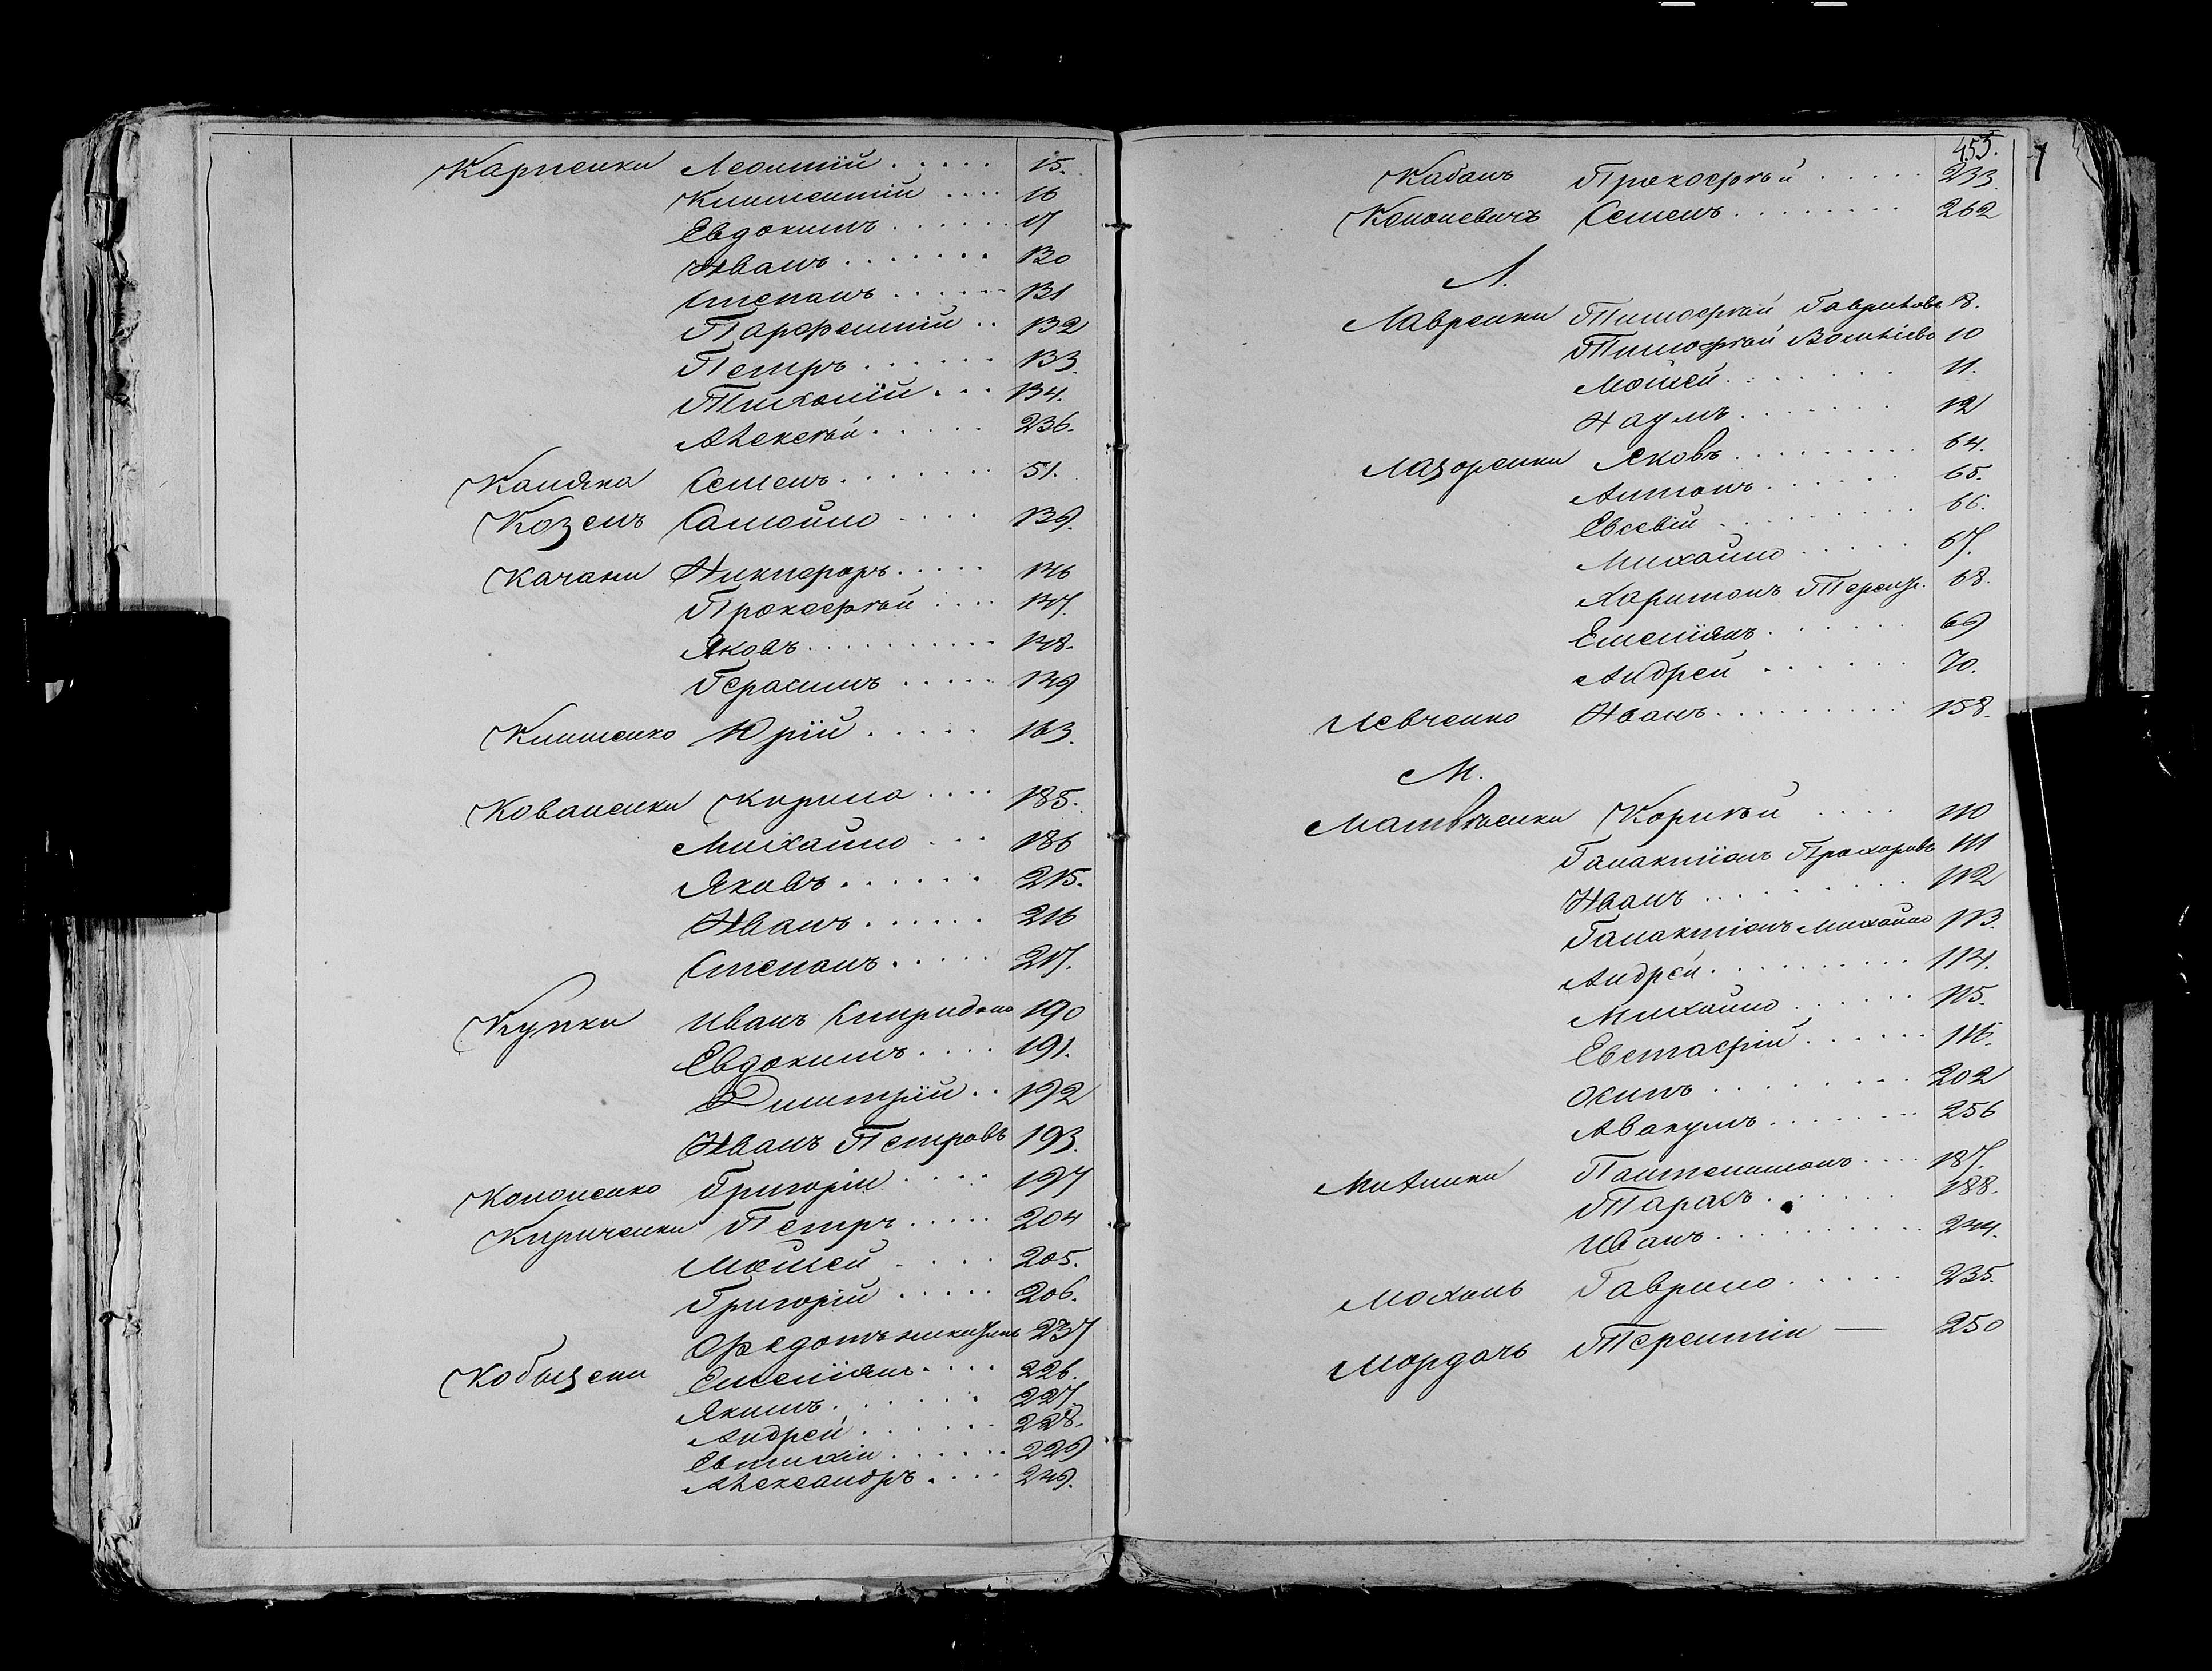 Карпенки Леонтій ..... 15.
Климентій .... 16
Евдокимъ ...... 17
Иванъ ....... 130
Степанъ ...... 131
Парфентій .. 132
Петръ ...... 133.
Тихонъ ... 134.
Алексѣй ..... 236.
Семенъ ...... 51.
Козелъ Самойло .... 139.
Качаны Никифоръ ..... 146
Прокофѣй .... 147.
Яковъ .......... 148.
Герасимъ ..... 149
Клименко Юрій ..... 163.
Коваленки Кирило .... 185.
Михайло ... 186
Яковъ ...... 215.
Иванъ ...... 216
Степанъ ..... 217.
Купки Иванъ Спиридоно 190
Евдокимъ .... 191.
Дмитрій .. 192
Иванъ Петровъ 193.
Кононенко Григорій .... 197
Кириченки Петръ ..... 204
Мойсей .... 205.
Григорій ..... 206.
Федотъ 237
Емеліянъ .... 226.
Якимъ ...... 227.
Андрей ...... 228.
Евтихій ...... 229
Александръ .... 249.
455.
Кабанъ Прокофѣй ..... 233.
Кононевичъ Семенъ ........ 262
Л.
Лавренки Тимофѣй Гавриловъ 8.
Тимофѣй 10
Мойсей ....... 11.
Наумъ ....... 12
Лазоренки Яковъ ......... 64.
Антонъ ...... 65.
Евсевій ........ 66.
Михайло ..... 67.
Харитонъ 68.
Емеліянъ ...... 69
Андрей ...... 70.
Левченко Иванъ ......... 158.
М.
Матвѣенки Корнѣй .... 110
Галактіонъ Прохоровъ 111
Иванъ ........ 112
Галактіонъ Михайло 113.
Андрей .......... 114.
Михайло ...... 115.
Евстафій ...... 116.
Осипъ ......... 202
Авакумъ ....... 256
Пантелимонъ .... 187.
Тарасъ ...... 188.
Иванъ ......... 244.
Мохонь Гаврило ..... 235.
Мордачъ Терентій — 250